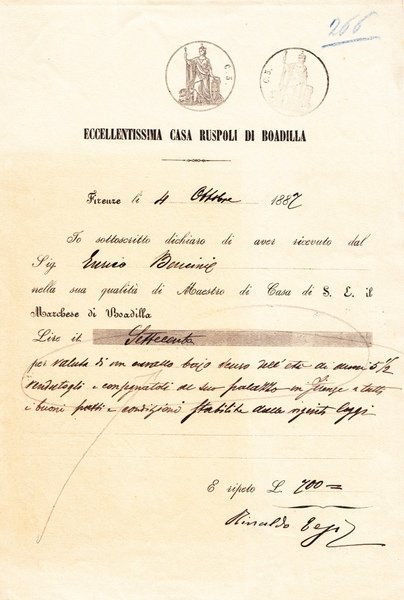 266
C. 5.
C. 5.
ECCELLENTISSIMA CASA RUSPOLI DI BOADILLA
Firenze li 4 Ottobre 1887
Io sottoscritto dichiaro di aver ricevuto dal
Sig. Enrico
nella sua qualità di Maestro di Casa di S. E. il
Marchese di Boadilla
Lire it. Settecento
per valuta di un cavallo bajo scuro dell'età di anni 5 1/2
vendutogli e consegnatoli nel suo palazzo in Firenze a tutti
i buoni patti e condizioni stabilite dalle vigenti leggi
E ripeto L. 700=
Rinaldo